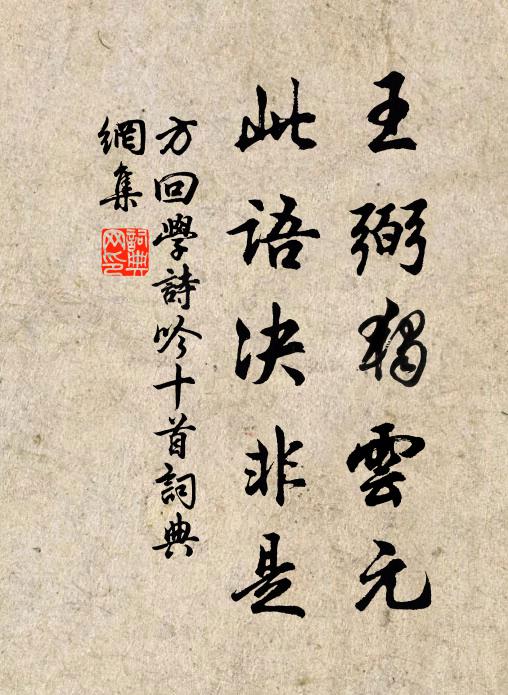 王弼獨雲元
此語決非是
方回學詩吟十首詞典
網集
詞典
网印